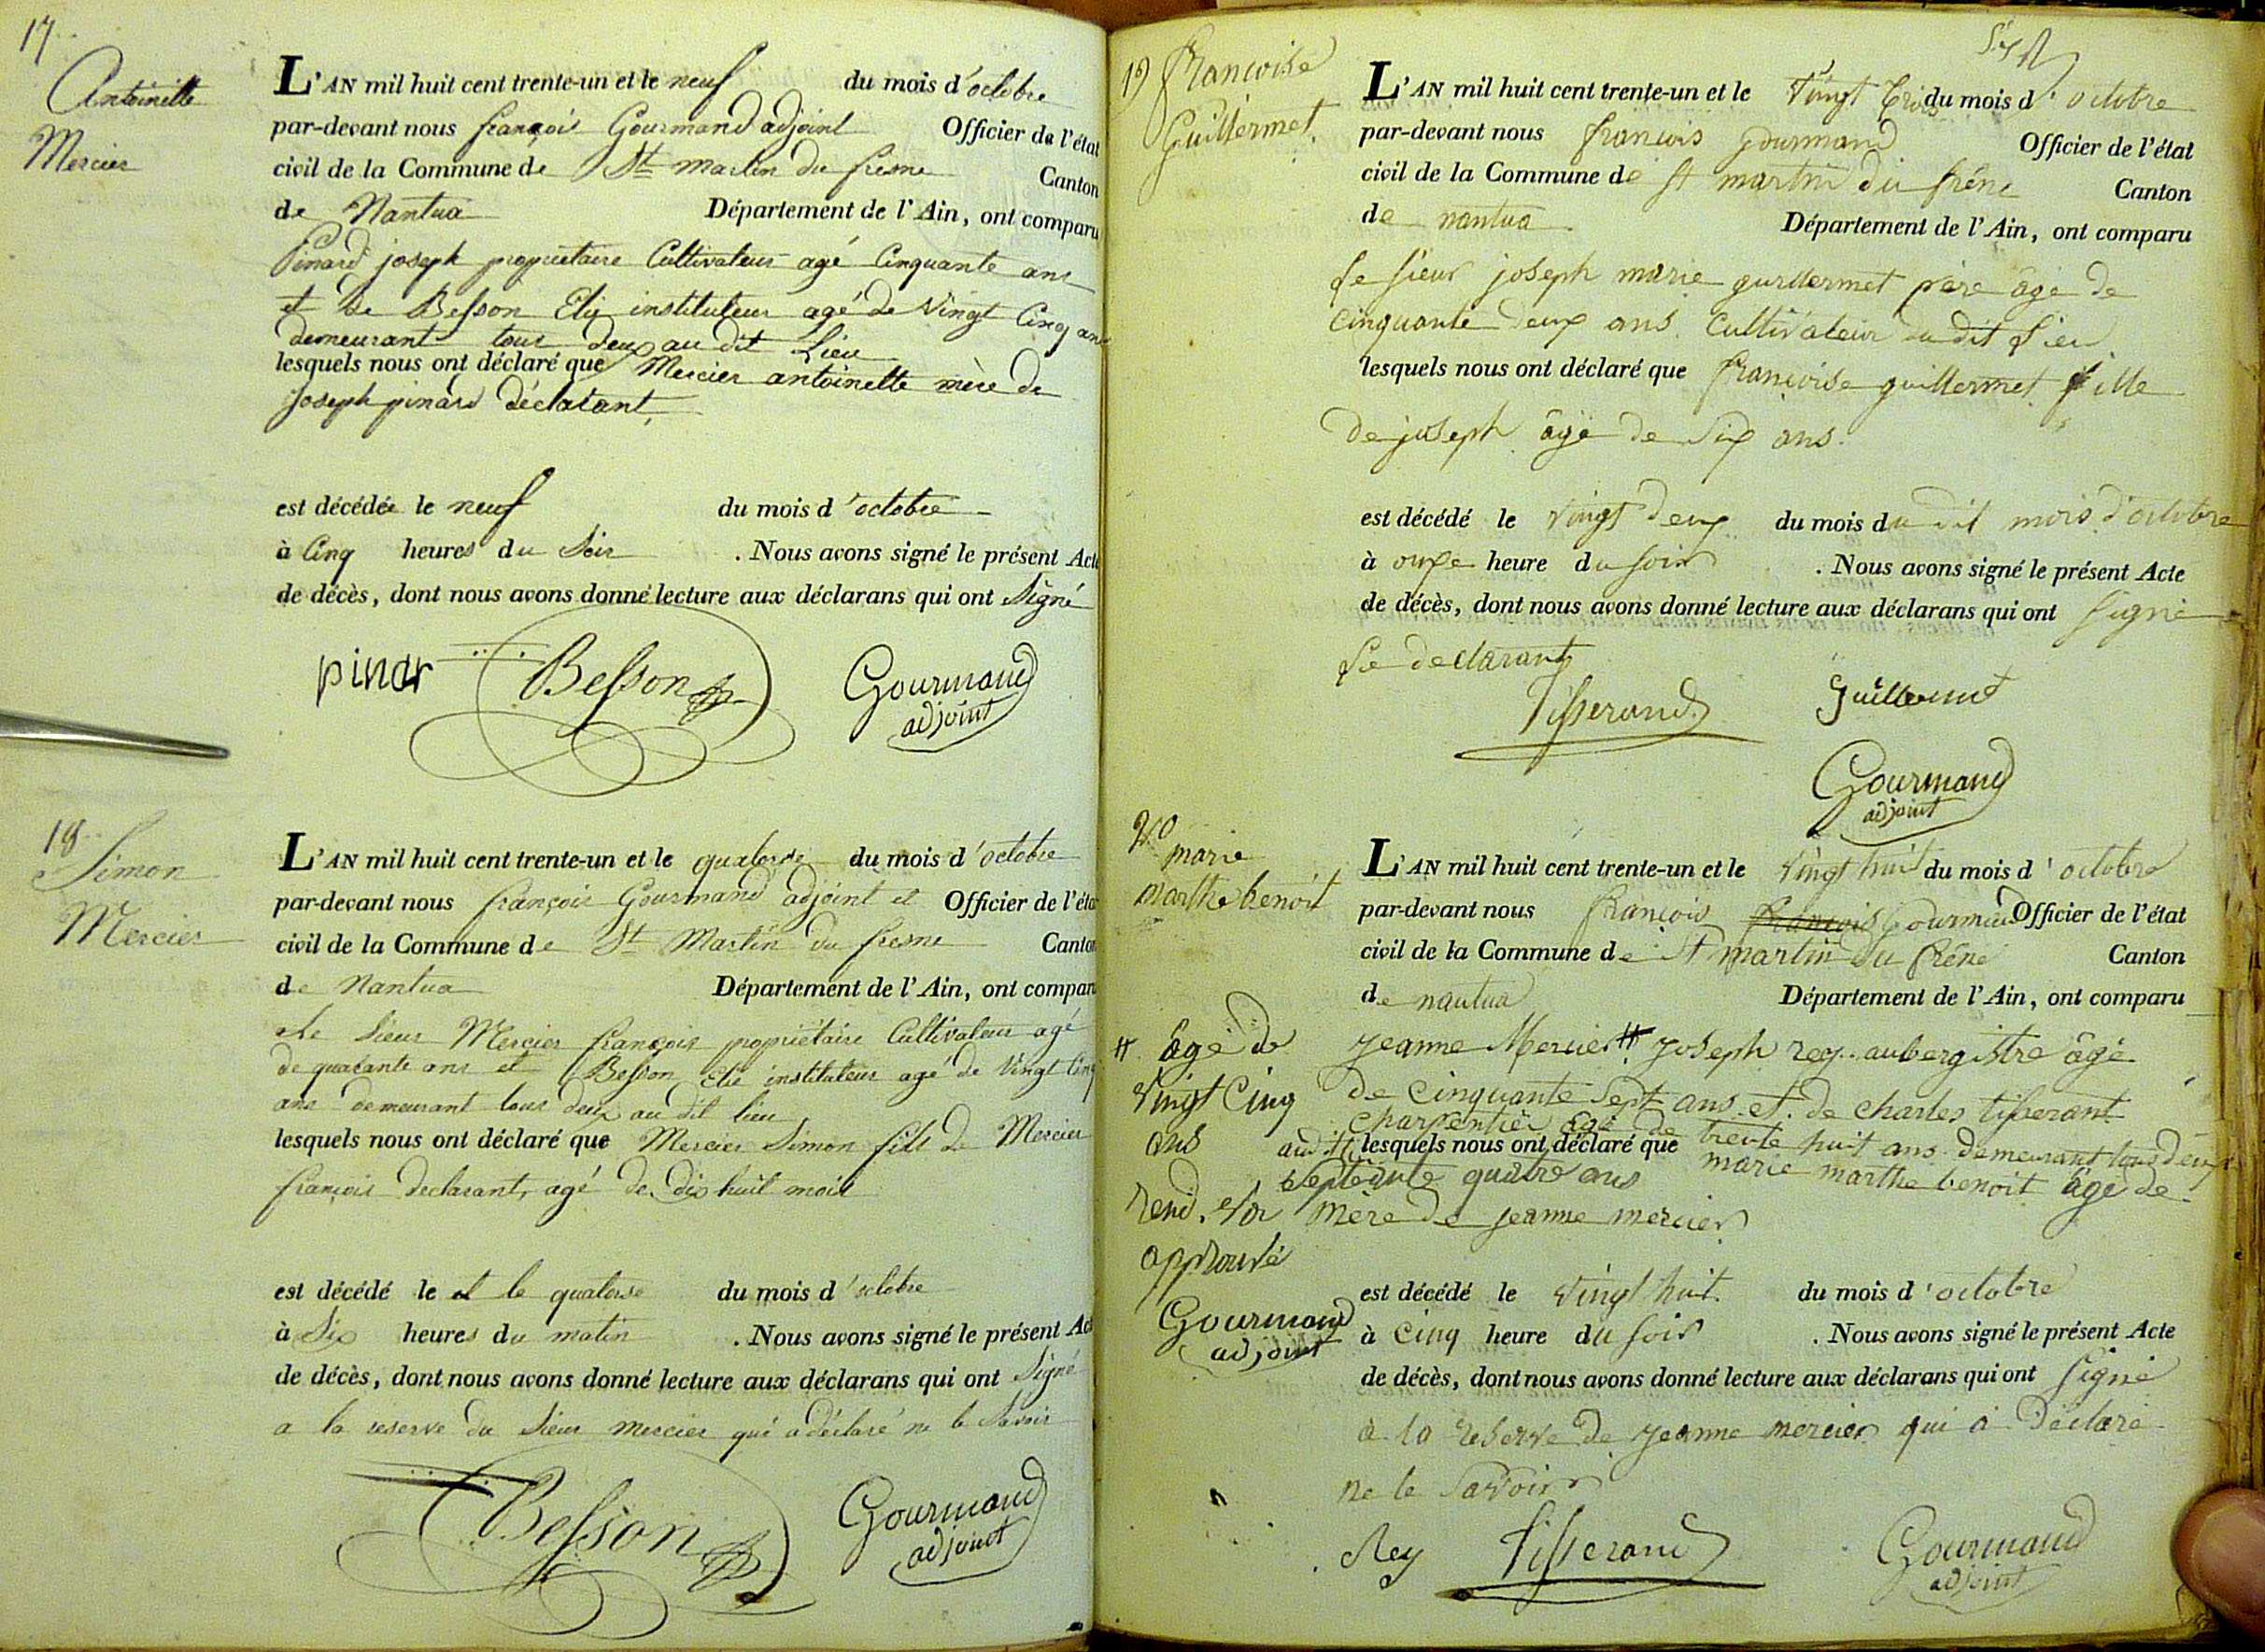 17
Antoinette
Mercier
L'AN mil huit cent trente-un et le neuf du mois d'octobre
par-devant nous françois Gourmand adjoint Officier de l'état
civil de la Commune de St martin du fresne Canton
de Nantua Département de l'Ain, ont comparu
Pinard joseph propriétaire Cultivateur agé Cinquante ans
et de Besson Elie instituteur agé de Vingt Cinq ans
demeurant tous deux au dit Lieu
lesquels nous ont déclaré que Mercier antoinette mère de
Joseph pinard déclarant
est décédée le neuf du mois d'octobre
à Cinq heures du Soir . Nous avons signé le présent Acte
de décès, dont nous avons donné lecture aux déclarans qui ont Signé
pinar Besson Gourmand
adjoint
18
Simon
Mercier
L'AN mil huit cent trente-un et le quatorse du mois d'octobre
par-devant nous françois Gourmand adjoint et Officier de l'état
civil de la Commune de St Martin du fresne Canton
de Nantua Département de l'Ain, ont comparu
Le Sieur Mercier françois propriétaire Cultivateur agé
de quarante ans et Besson Elie instituteur agé de Vingt Cinq
ans demeurant tous deux au dit lieu
lesquels nous ont déclaré que Mercier Simon fils de Mercier
françois declarant, agé de dix huit mois
est décédé le et le quatorse du mois d'octobre
à Six heures du matin . Nous avons signé le présent Acte
de décès, dont nous avons donné lecture aux déclarans qui ont Signé
a la reserve du Sieur Mercier qui a déclaré ne le Savoir
Besson Gourmand
adjoint
19 francoise
Guillermet
L'AN mil huit cent trente-un et le Vingt trois du mois d'octobre
par-devant nous francois gourmand Officier de l'état
civil de la Commune de St martin du frêne Canton
de nantua Département de l'Ain, ont comparu
Le sieur joseph marie guillermet père âgé de
Cinquante deux ans Cultivateur du dit Lieu
lesquels nous ont déclaré que francoise guillermet fille
de joseph âgé de Six ans.
est décédé le Vingt deux du mois du dit mois d'octobre
à onze heure du soir . Nous avons signé le présent Acte
de décès, dont nous avons donné lecture aux déclarans qui ont signé
Le declarant
Tisserand Guillermet
Gourmand
adjoint
20
marie
marthe benoit
L'AN mil huit cent trente-un et le Vingt huit du mois d'octobre
par-devant nous francois francois Gourmand Officier de l'état
civil de la Commune de St martin du frêne Canton
de nantua Département de l'Ain, ont comparu
jeanne Mercier # joseph rey aubergistre âgé
de Cinquante Sept ans et de charles tisserant
charpentier âgé de trente huit ans demeurant tous deux
au dit lieu lesquels nous ont déclaré que marie marthe benoit âgé de
Septante quatre ans
mère de jeanne mercier
# âgé de
Vingt Cinq
ans
approuvé
Gourmand
adjoint
est décédé le Vingt huit du mois d'octobre
à Cinq heure du soir . Nous avons signé le présent Acte
de décès, dont nous avons donné lecture aux déclarans qui ont signé
a la reserve de jeanne mercier qui a déclaré
ne le Savoir
Rey Tisserand Gourmand
adjoint